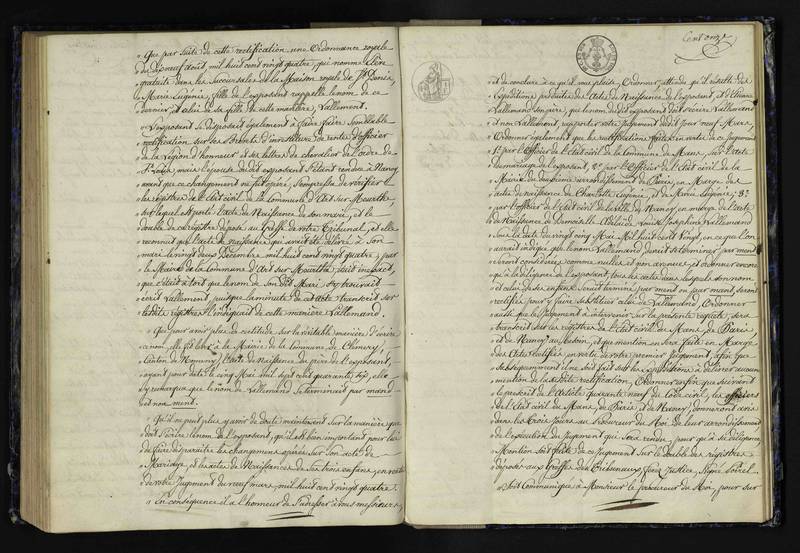 « Que par suite de cette rectification, une Ordonnance royale
« du neuf août, mil huit cent vingt quatre, qui nomme Élève
« gratuite dans les Succursales de la Maison royale de St Denis,
« Marie Eugénie, fille de l'exposant rappelle le nom de ce
« dernier et celui de sa fille de cette manière, Lallement.
« L'exposant se disposait également à faire faire semblable
« rectification sur ses Brevets d'investiture de rente d'officier
« de la Légion d'honneur et ses lettres de chevalier de l'ordre de
« St Louis, mais l'épouse dudit exposant s'étant rendue à Nancy
« avant que ce changement ne fut opéré, s'empressa de vérifier
« les registres de l'État civil de la Commune d'Art sur Meurthe,
« sur lequel est porté l'acte de Naissance de son mari, et le
« double de ce registre déposé au Greffe de votre Tribunal, et elle
« reconnut que l'acte de naissance qui avait été délivré à Son
« mari le vingt deux Décembre mil huit cent vingt quatre, par
« le Maire de la Commune d'Art sur Meurthe était inexact,
« que c'était à tort que le nom de Son dit Mari s'y trouvait
« écrit Lallement, puisque la minute de cet acte transcrit sur
« ladite registres l'indiquait de cette manière Lallemand.
« Que pour avoir plus de certitude sur la véritable manière d'écrire
« ce nom, elle fit lever à la Mairie de la Commune de Clemery,
« Canton de Nomeny, l'acte de naissance du père de l'exposant,
« ayant pour date le cinq Mai mil sept cent quarante sept, elle
« y remarqua que le nom de Lallemand se terminait par mand
« et non ment.
« Qu'il ne peut plus y avoir de doute maintenant sur la manière que
« doit s'écrire le nom de l'exposant, qu'il est bien important pour lui
« de faire disparaître les changemens opérés sur son acte de
« Mariage, et les actes de Naissances de ses trois enfans, en vertu
« de votre Jugement du neuf mars, mil huit cent vingt quatre.
« En conséquence il a l'honneur de s'adresser à vous messieurs,
Cent onze
« et de conclure à ce qu'il vous plaise, Ordonner, attendu qu'il résulte des
« Expéditions produites des Actes de Naissance de l'exposant, et d'Étienne
« Lallemand son père, que le nom de l'exposant doit s'écrire Lallemand
« et non Lallement, rapporter votre Jugement dudit jour neuf Mars,
« Ordonner également que les rectifications faites en vertu de ce Jugement
« 1° par l'Officier de l'État civil de la Commune du Mans, sur l'acte
« de mariage de l'exposant, 2° par l'Officier de l'État civil de la
« Mairie du deuxième arrondissement de Paris, en Marge des
« actes de naissance de Charlotte Euphémie, et de Marie Eugénie; 3°
« par l'Officier de l'État civil de la ville de Nancy, en marge de l'acte
« de Naissance de Demoiselle Adélaïde Louise Joséphine Lallemand
« Sous la date du vingt cinq Mai Mil huit cent Vingt, en ce que l'on
« aurait indiqué que le nom Lallemand devait se terminer par ment
« seront considérées comme nulles et non avenues et ordonner encore
« qu'à la diligence de l'exposant tous les actes dans lesquels son nom
« et celui de ses enfans seroit terminé par ment ou par mant seront
« rectifiés pour y faire substituer celui de Lallemand, Ordonner
« aussi que le Jugement à intervenir sur la présente requête, sera
« transcrit sur les registres de l'État civil du Mans, de Paris
« et de Nancy au besoin, et que mention en sera faite en Marge
« des Actes rectifiés en vertu de votre premier Jugement, afin que
« subséquemment il ne soit fait sur les expéditions à délivrer aucune
« mention de la susdite rectification, Ordonner enfin que suivant
« le prescrit de l'Article quarante neuf du Code civil, les officiers
« de l'État civil du Mans, de Paris, et de Nancy, donneront avis
« dans les trois jours au Procureur du Roi de leur arrondissement
« de l'exécution du Jugement qui sera rendu, pour qu'à sa diligence,
« Mention soit faite de ce Jugement sur le double des registres
« déposés aux Greffes des Tribunaux, ferez Justice, Signé Poirel.
« Soit Communiqué à Monsieur le procureur du Roi, pour sur